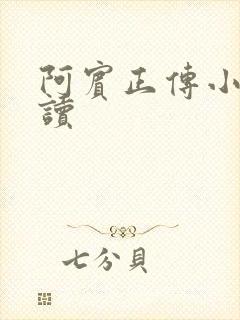 阿賓正傳小
讀
七分貝